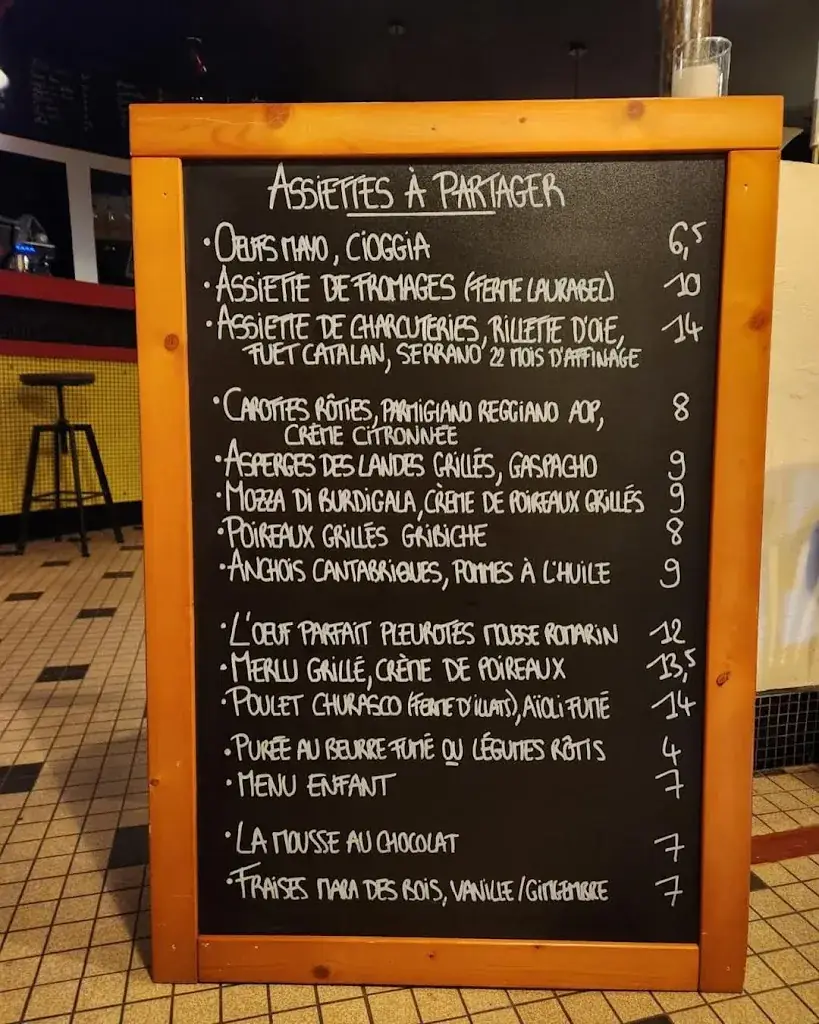 ASSIETTES À PARTAGER
• OEUFS MAYO, CIOGGIA 6,5
• ASSIETTE DE FROMAGES (FERME LAURABEL) 10
• ASSIETTE DE CHARCUTERIES, RILLETTE D'OIE, 14
FUET CATALAN, SERRANO 22 MOIS D'AFFINAGE
• CAROTTES RÔTIES, PARMIGIANO REGGIANO AOP, 8
CRÈME CITRONNÉE
• ASPERGES DES LANDES GRILLÉS, GASPACHO 9
• MOZZA DI BURDIGALA, CRÈME DE POIREAUX GRILLÉS 9
• POIREAUX GRILLÉS GRIBICHE 8
• ANCHOIS CANTABRIQUES, POMMES À L'HUILE 9
• L'OEUF PARFAIT PLEUROTES MOUSSE ROMARIN 12
• MERLU GRILLÉ, CRÈME DE POIREAUX 13,5
• POULET CHURASCO (FERME D'ILLATS), AÏOLI FUMÉ 14
• PURÉE AU BEURRE FUMÉ OU LÉGUMES RÔTIS 4
• MENU ENFANT 7
• LA MOUSSE AU CHOCOLAT 7
• FRAISES MARA DES BOIS, VANILLE/GINGEMBRE 7